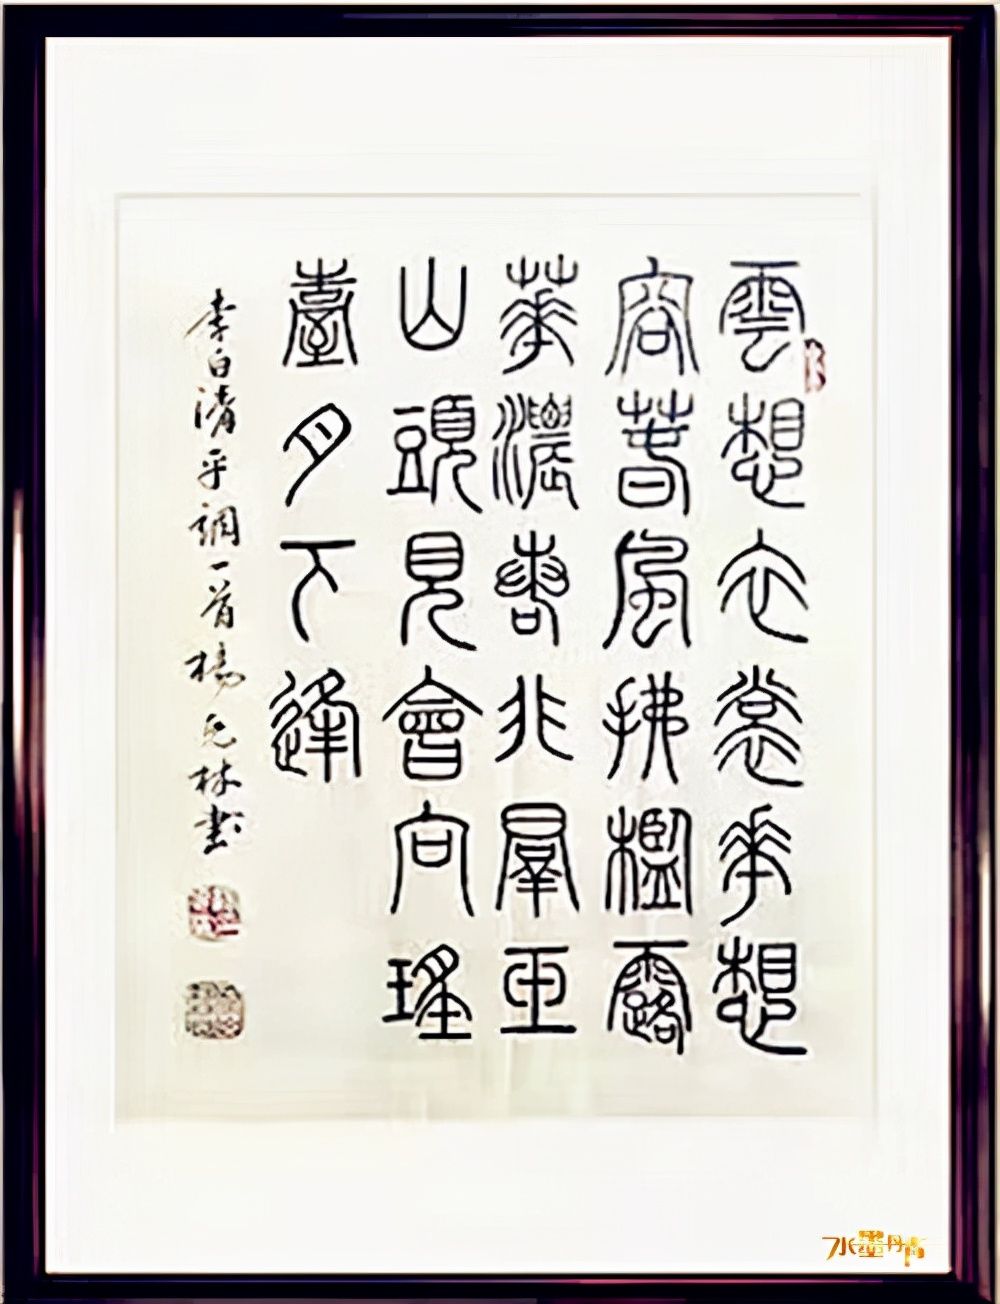 雲想衣裳華想
容春風拂檻露
華濃若非羣玉
山頭見會向瑤
臺月下逢
李白清平調一首楊林書
水墨丹青